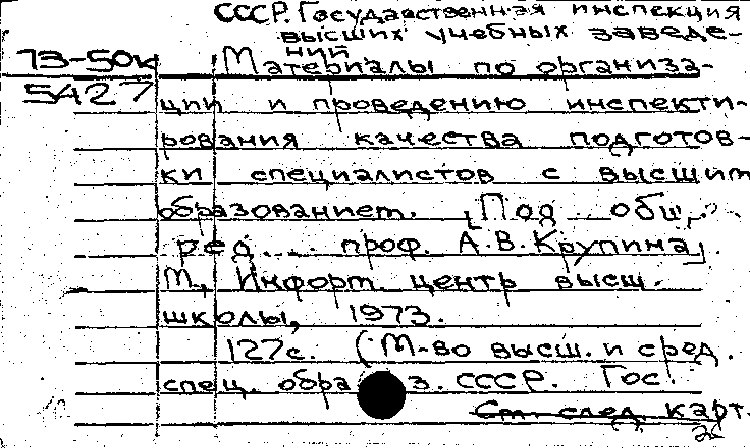 СССР. Государственная инспекция
высших учебных заведе-
ний.
73-50к
5427
Материалы по организа-
ции и проведению инспекти-
рования качества подготов-
ки специалистов с высшим
образованием. [Под общ.
ред. ... проф. А.В. Крупина].
М., Информ. центр высш.
школы, 1973.
127с. (М-во высш. и сред.
спец. обра з. СССР. Гос.
См. след. карт.